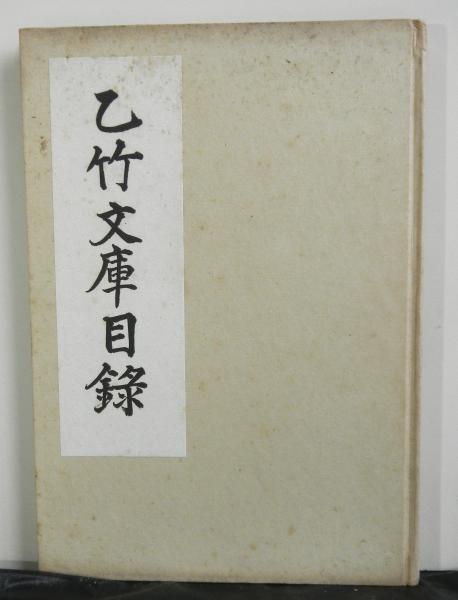 乙竹文庫目錄